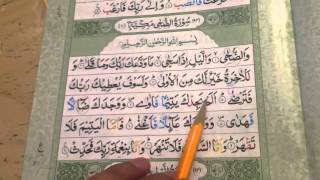 فَانصَبْ ۝ وَإِلَىٰ رَبِّكَ فَارْغَب ۝
سُورَةُ الضُّحَىٰ مَكِّيَّة
بِسْمِ اللَّهِ الرَّحْمَٰنِ الرَّحِيمِ
وَالضُّحَىٰ ۝ وَاللَّيْلِ إِذَا سَجَىٰ ۝ مَا وَدَّعَكَ رَبُّكَ وَمَا قَلَىٰ ۝ وَ
لَلْآخِرَةُ خَيْرٌ لَّكَ مِنَ الْأُولَىٰ ۝ وَلَسَوْفَ يُعْطِيكَ رَبُّكَ
فَتَرْضَىٰ ۝ أَلَمْ يَجِدْكَ يَتِيمًا فَآوَىٰ ۝ وَوَجَدَكَ ضَالًّا
فَهَدَىٰ ۝ وَوَجَدَكَ عَائِلًا فَأَغْنَىٰ ۝ فَأَمَّا الْيَتِيمَ فَلَا
تَقْهَرْ ۝ وَأَمَّا السَّائِلَ فَلَا تَنْهَرْ ۝ وَأَمَّا بِنِعْمَةِ رَبِّكَ فَحَدِّثْ ۝